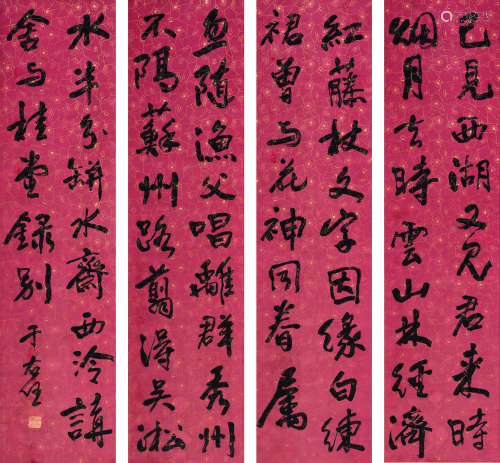 已見西湖又見君来時
烟月去時雲山林經濟
紅藤杖文字因緣白練
裙曾与花神同眷屬
忽随漁父唱離群秀州
不隔蘇州路翦得吴淞
水半分缾水齋西泠講
舍与桂堂録别
于右任